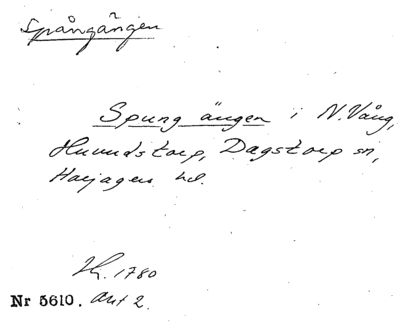 Spångängen
Spung ängen i N. Vång,
Huvudstorp, Dagstorp sn,
Harjagers hd.
1780
Nr 5610. Akt 2.